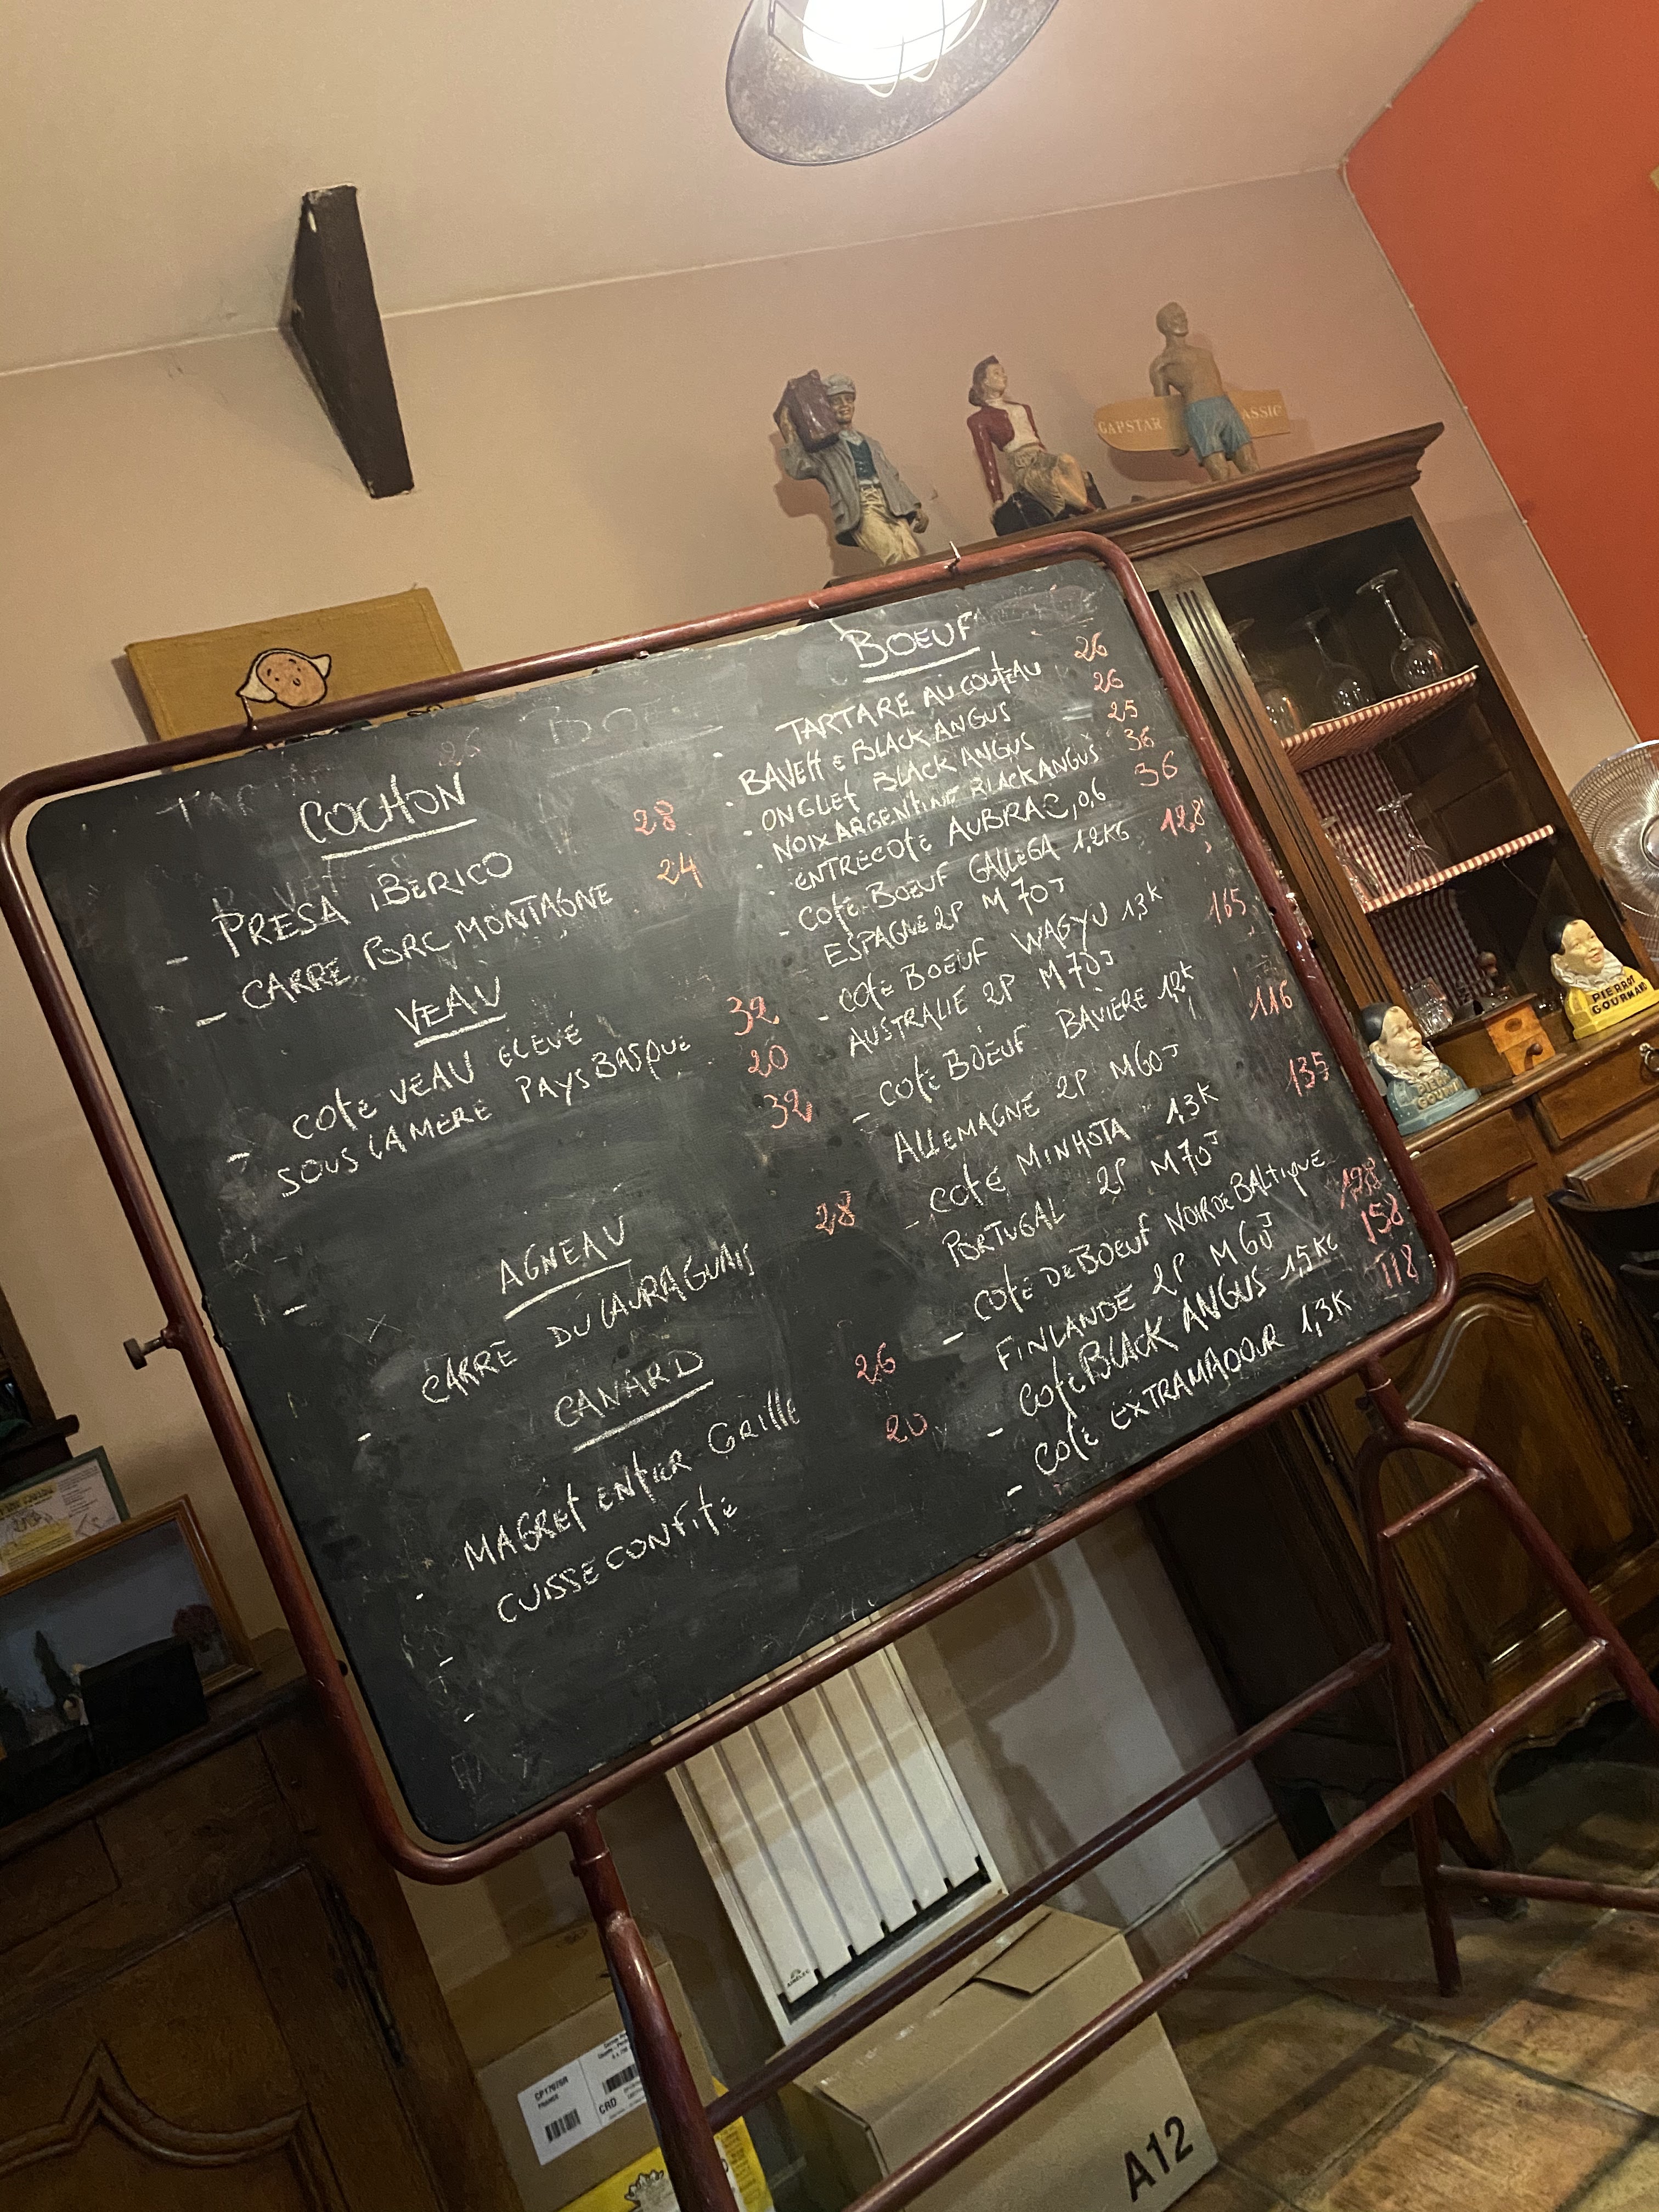 COCHON
- PRESA IBERICO 28
- CARRE PORC MONTAGNE 24
VEAU
- COTE VEAU ELEVÉ 32
SOUS LA MERE PAYS BASQUE 20
32
AGNEAU
- CARRE DU LAURAGUAIS 28
CANARD
- MAGRET ENTIER GRILLE 26
- CUISSE CONFITE 20
BOEUF
- TARTARE AU COUTEAU 26
- BAVETTE BLACK ANGUS 26
- ONGLET BLACK ANGUS 25
- NOIX ARGENTINE BLACK ANGUS 36
- ENTRECOTE AUBRAC, 0,6 36
- COTE BOEUF GALLEGA 1.2KG 128
ESPAGNE 2P M 70J
- COTE BOEUF WAGYU 1,3K 165
AUSTRALIE 2P M70J
- COTE BOEUF BAVIÈRE 1,2K 116
ALLEMAGNE 2P M60J
- COTE MINHOTA 1,3K 135
PORTUGAL 2P M70J
- COTE DE BOEUF NOIR DE BALTIQUE
FINLANDE 2P M60J
- COTE BLACK ANGUS 1,5KG 158
- COTE EXTRAMADOUR 1,3K 118
GAPSTAR ASSIC
PIERROT
GOURMAND
A12
CP17078R
FRANCE
CRD